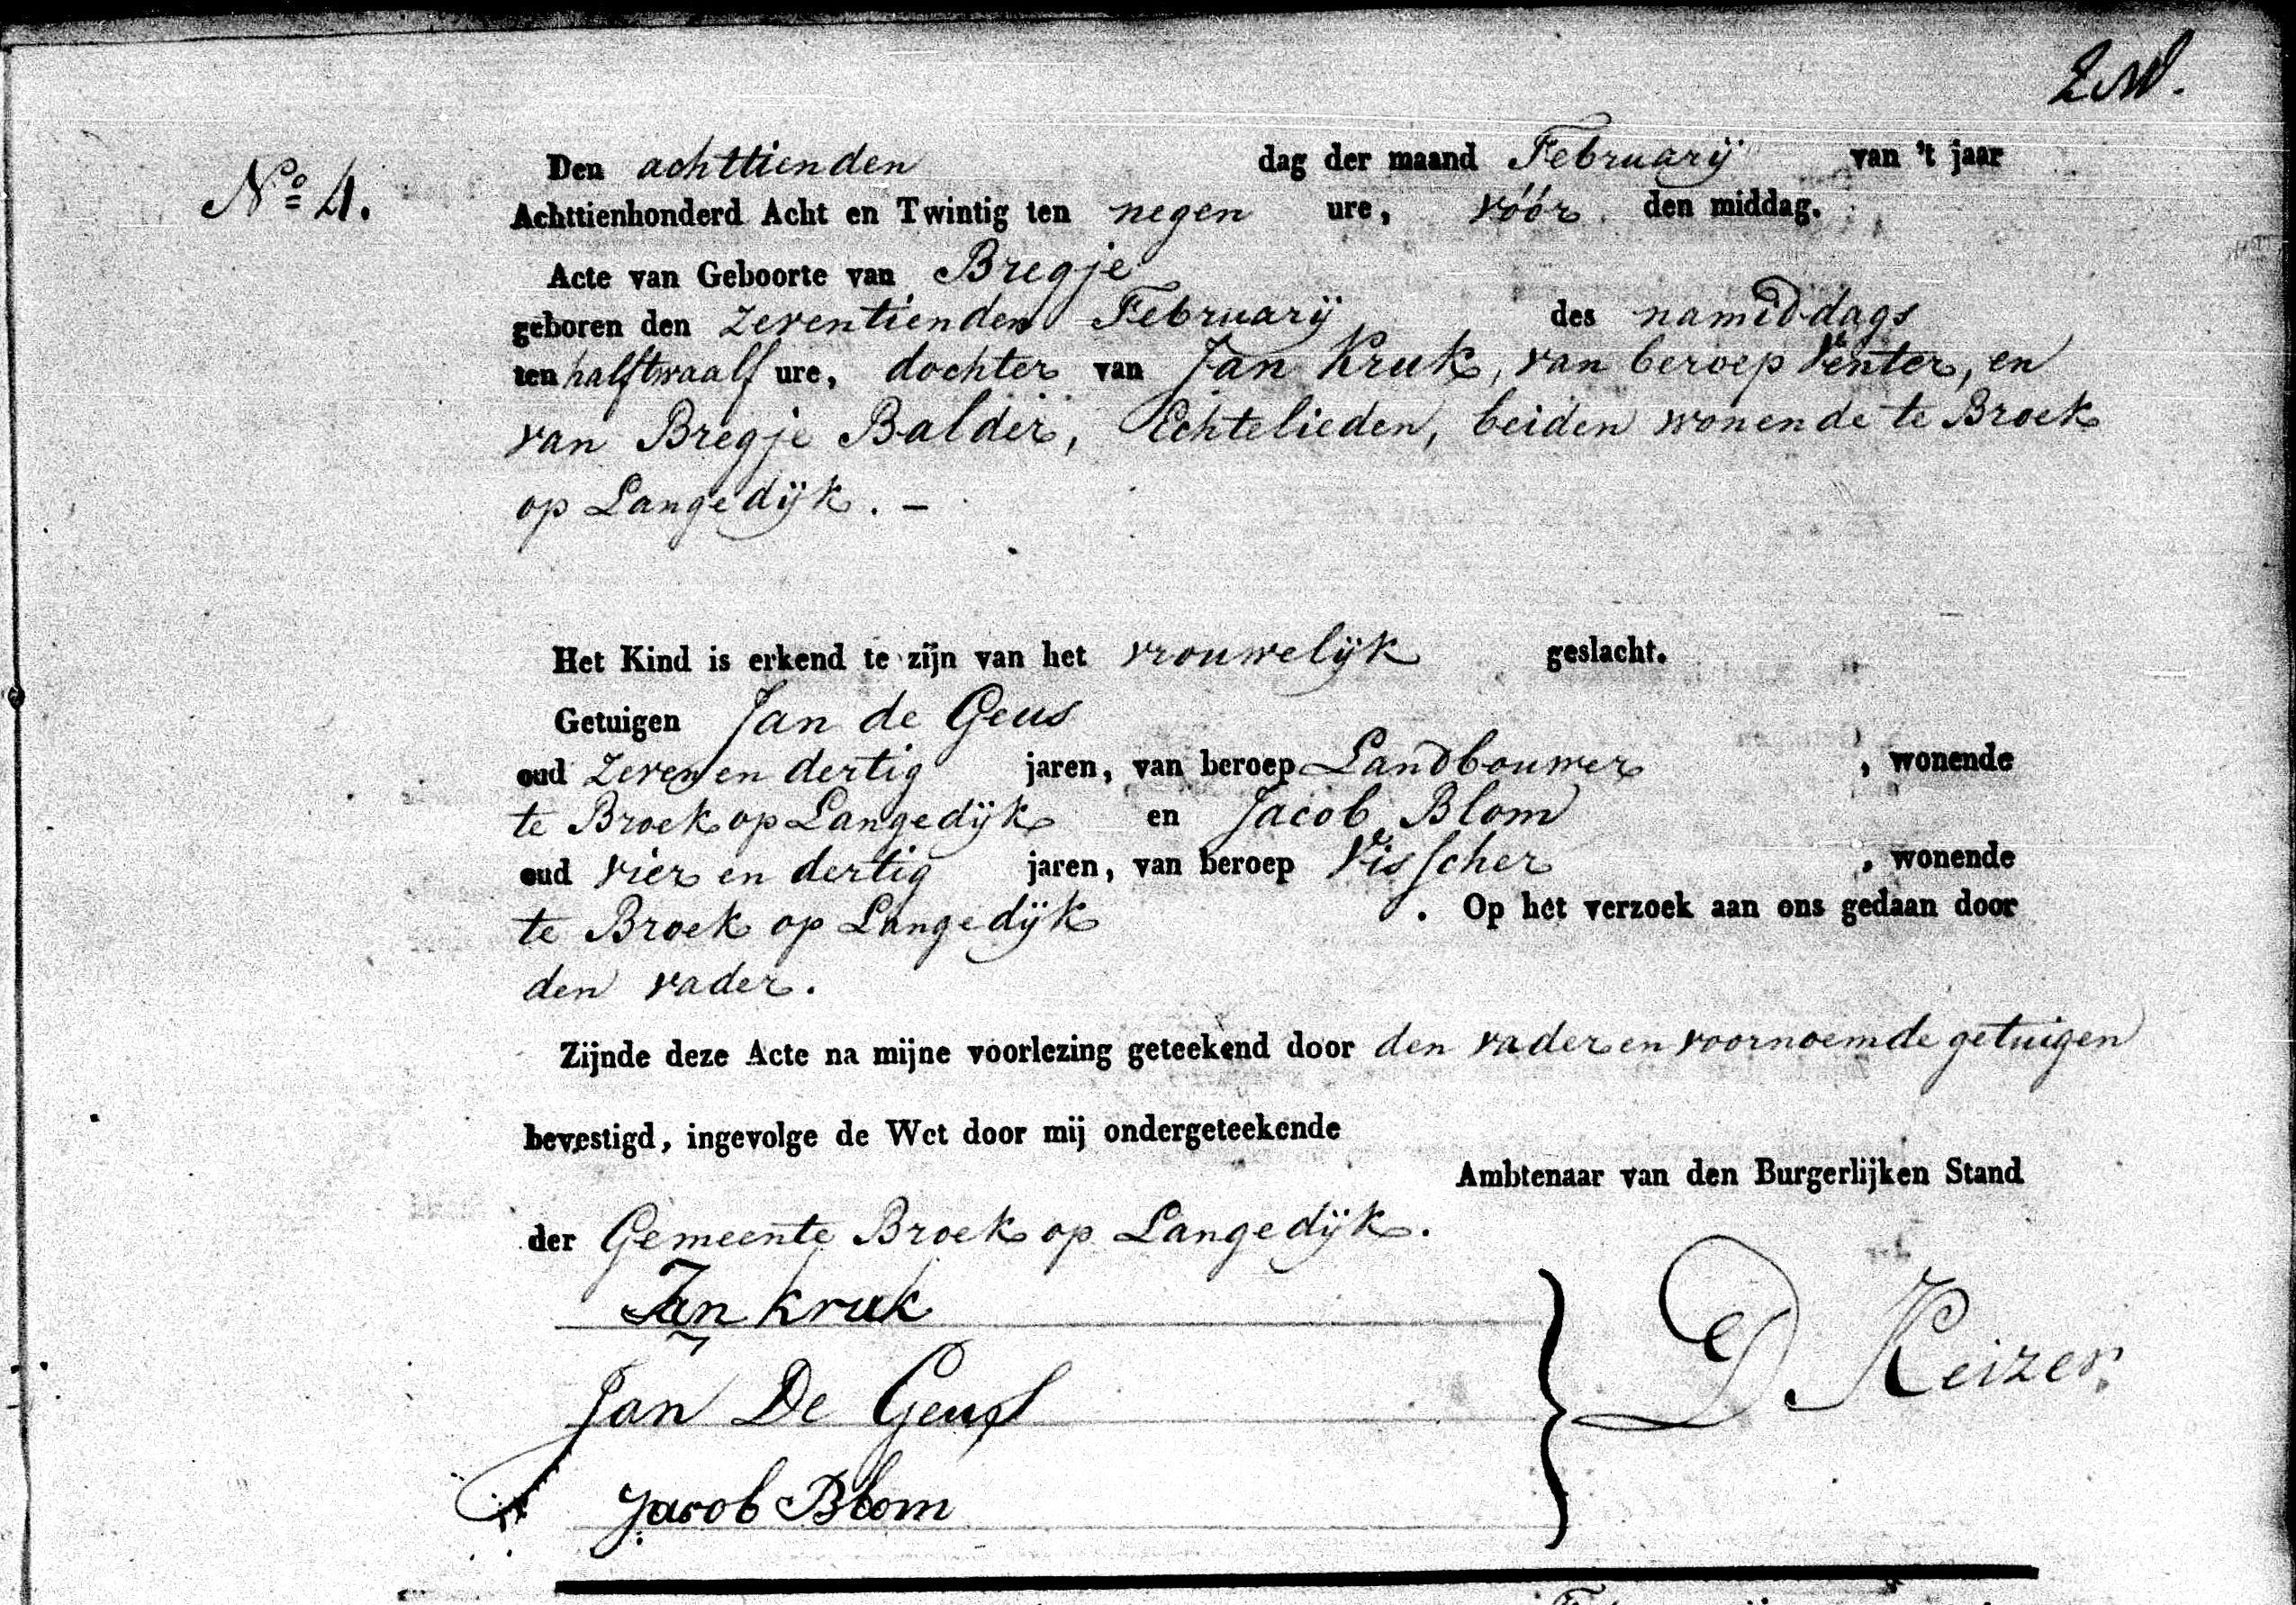 No. 4.
Den achttienden dag der maand February van 't jaar
Achttienhonderd Acht en Twintig ten negen ure, vóór den middag.
Acte van Geboorte van Bregje
geboren den zeventienden February des namiddags
ten halftwaalf ure, dochter van Jan Kruk, van beroep Venter, en
van Bregje Balder, Echtelieden, beiden wonende te Broek
op Langedijk. –
Het Kind is erkend te zijn van het vrouwelijk geslacht.
Getuigen Jan de Geus
oud zeven en dertig jaren, van beroep Landbouwer, wonende
te Broek op Langedijk en Jacob Blom
oud vier en dertig jaren, van beroep Visscher, wonende
te Broek op Langedijk. Op het verzoek aan ons gedaan door
den vader.
Zijnde deze Acte na mijne voorlezing geteekend door den vader en voornoemde getuigen
bevestigd, ingevolge de Wet door mij ondergeteekende
Ambtenaar van den Burgerlijken Stand
der Gemeente Broek op Langedijk.
Jan Kruk
Jan De Geus
D Keizer
Jacob Blom